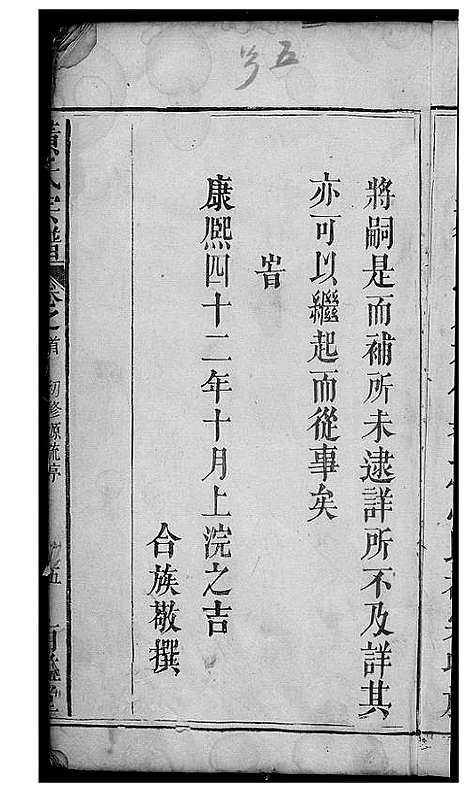 五
將嗣是而補所未逮詳所不及詳其
亦可以繼起而從事矣
旹
康熙四十二年十月上浣之吉
合族敬撰
氏宗譜
卷之首 初修源流序
五